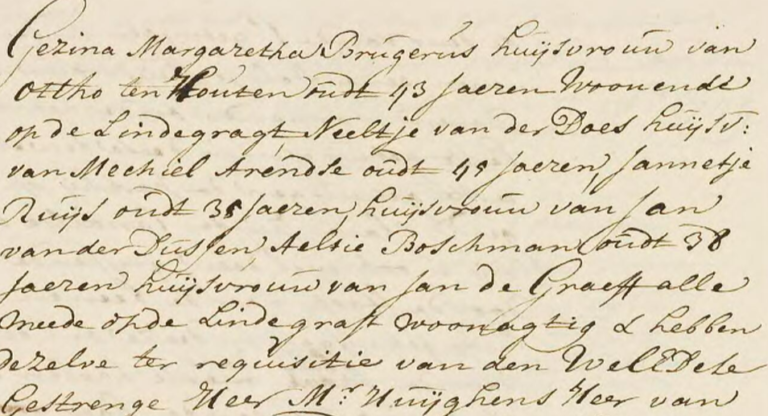 Gezina Margaretha Brugerus huijsvrouw van
Ottho ten Houten oudt 43 Jaeren Woonende
op de Lindegragt, Neeltje van der Does huijsv:
van Mechiel Arendse oudt 45 Jaeren, Jannetje
Ruijs oudt 35 Jaeren, huijsvrouw van Jan
van der Dussen, Aeltie Boschman oudt 38
Jaeren huijsvrouw van Jan de Graeff alle
meede op de Lindegraft woonagtig & hebben
dezelve ter requisitie van den WelEdele
Gestrenge Heer Mr. Huijghens Heer van